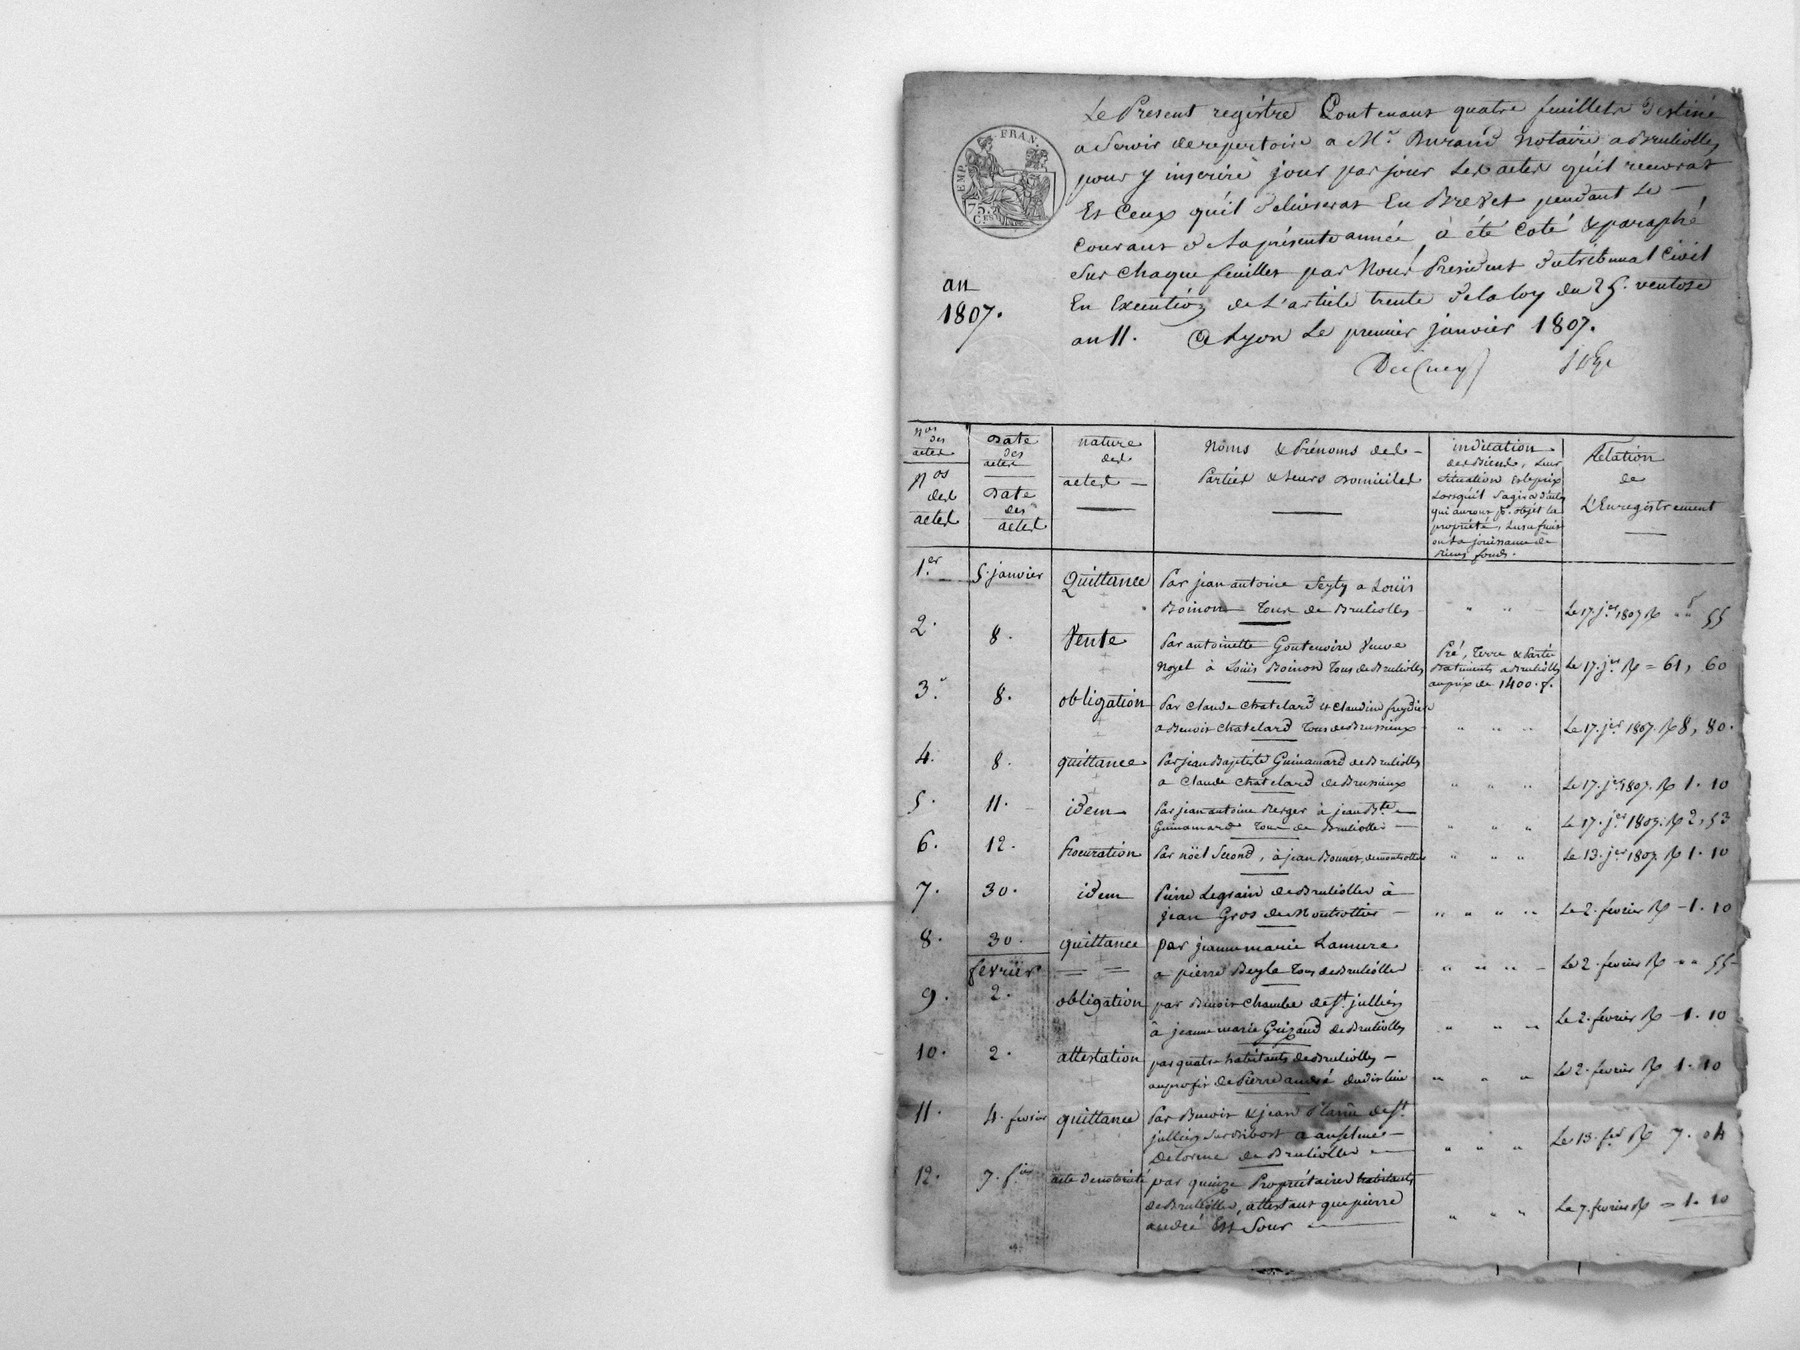 Le Present registre Contenant quatre feuillets Destiné
a Servir de repertoire a Mr. Durand Notaire a Brullolles
pour y inscrire jour par jour Les actes qu'il recevrat
Et Ceux qu'il Deliverat En Brevet pendant Le —
Courant de La présente année, à été Coté & paraphé
Sur Chaque feuillet par Nous President du tribunal Civil
En Execution de L'article trente De la loy du 25. ventose
an 11. A Lyon Le premier janvier 1807.
EMP. FRAN.
75.
CENTIMES
an
1807.
Nos des actes
Date des actes
nature des actes —
Noms & Prénoms des — Parties & Leurs Domiciles
indication des Biens, Leur situation et le prix Lorsqu'il S'agira d'actes qui auront pr. objet la propriété, L'usufruit ou La jouissance de Biens fonds.
Relation de L'Enregistrement
Nos des actes
Date des actes
1.er 5. janvier Quittance Par jean antoine a Louïs
Boinon Tous de Brullolles Le 17. jer 1807 55
2. 8. Vente Par antoinette Goutenoire Veuve Pré, Terre & Partie
Noyel à Louïs Boinon Tous de Brullolles Batiments a Brullolles Le 17. jer = 61, 60
au prix de 1400. f.
3. 8. obligation Par Claude Chatelard et Claudine
a Benoit Chatelard Tous de Brussieux Le 17. jer 1807. 8, 80.
4. 8. quittance Par jean Baptiste Guinamard de Brullolles
a Claude Chatelard de Brussieux Le 17. jer 1807. 1. 10
5. 11. idem Par jean antoine Berger à jean Bte
Guinamard Tous de Brullolles Le 17. jer 1807. 2, 53
6. 12. Procuration Par noël Second, à jean Bonnet, de montrottier Le 13. jer 1807. 1. 10
7. 30. idem Pierre Legrain de Brullolles à
jean Gros de Montrottier — Le 2. fevrier — 1. 10
8. 30. quittance par jeanne marie Lamure
fevrier a pierre Tous de Brullolles Le 2. fevrier 55
9. 2. obligation par Benoit Chambe de St. jullien
à jeanne marie de Brullolles Le 2. fevrier — 1. 10
10. 2. attestation par quatre habitants de Brullolles —
au profit de Pierre andré Le 2. fevrier 1. 10
11. 4. fevrier quittance Par Benoit & jean de St.
jullien Sur Bibost a anselme —
Delorme de Brullolles Le 13. fer 7. 04
12. 7. fer acte de notorieté par quinze Propriétaires habitants
de Brullolles, attestant que pierre
andré Est Sour Le 7. fevrier = 1. 10